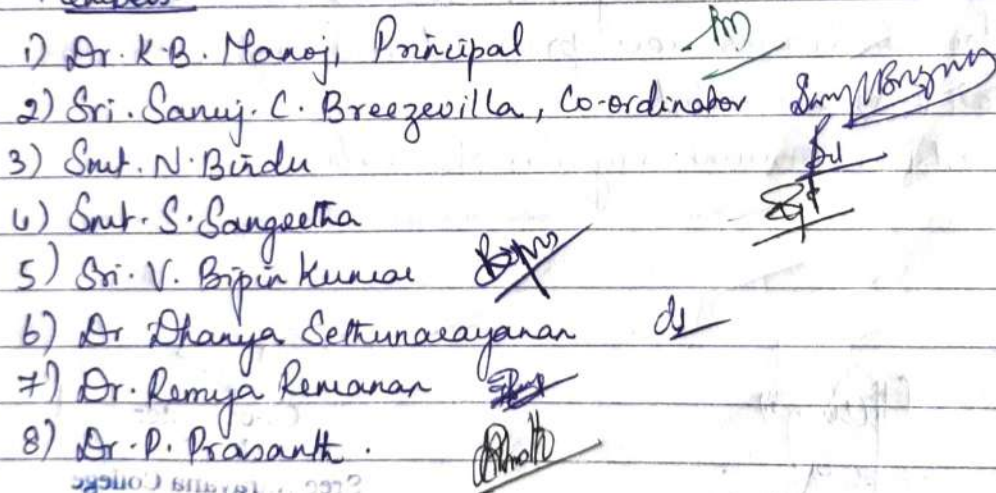 1) Dr. K.B. Manoj, Principal
2) Sri. Sanuj. C. Breezevilla, Co-ordinator
3) Smt. N. Bindu
4) Smt. S. Sangeetha
5) Sri. V. Bipin Kumar
6) Dr Dhanya Sethunarayanan
7) Dr. Remya Remanan
8) Dr. P. Prasanth.
College